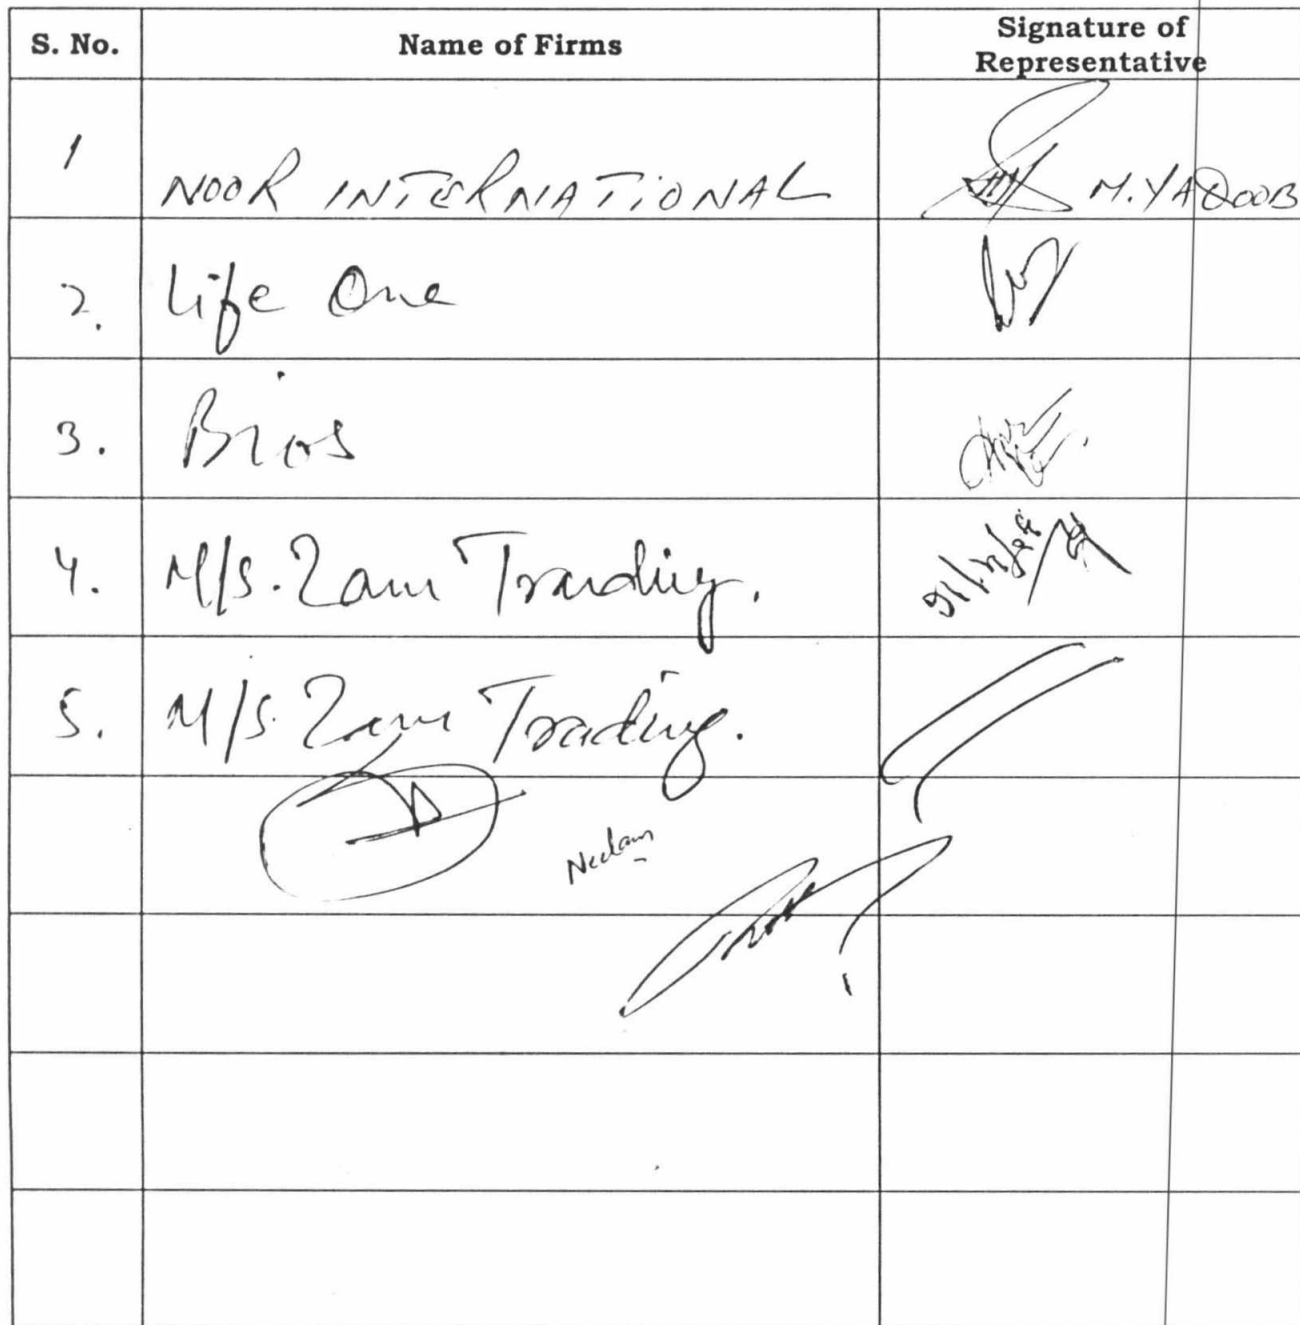 S. No. Name of Firms Signature of Representative
1 NOOR INTERNATIONAL M. YAQOOB
2. Life One
3. Bios
4. M/s. Zam Trading.
5. M/s. Zam Trading.